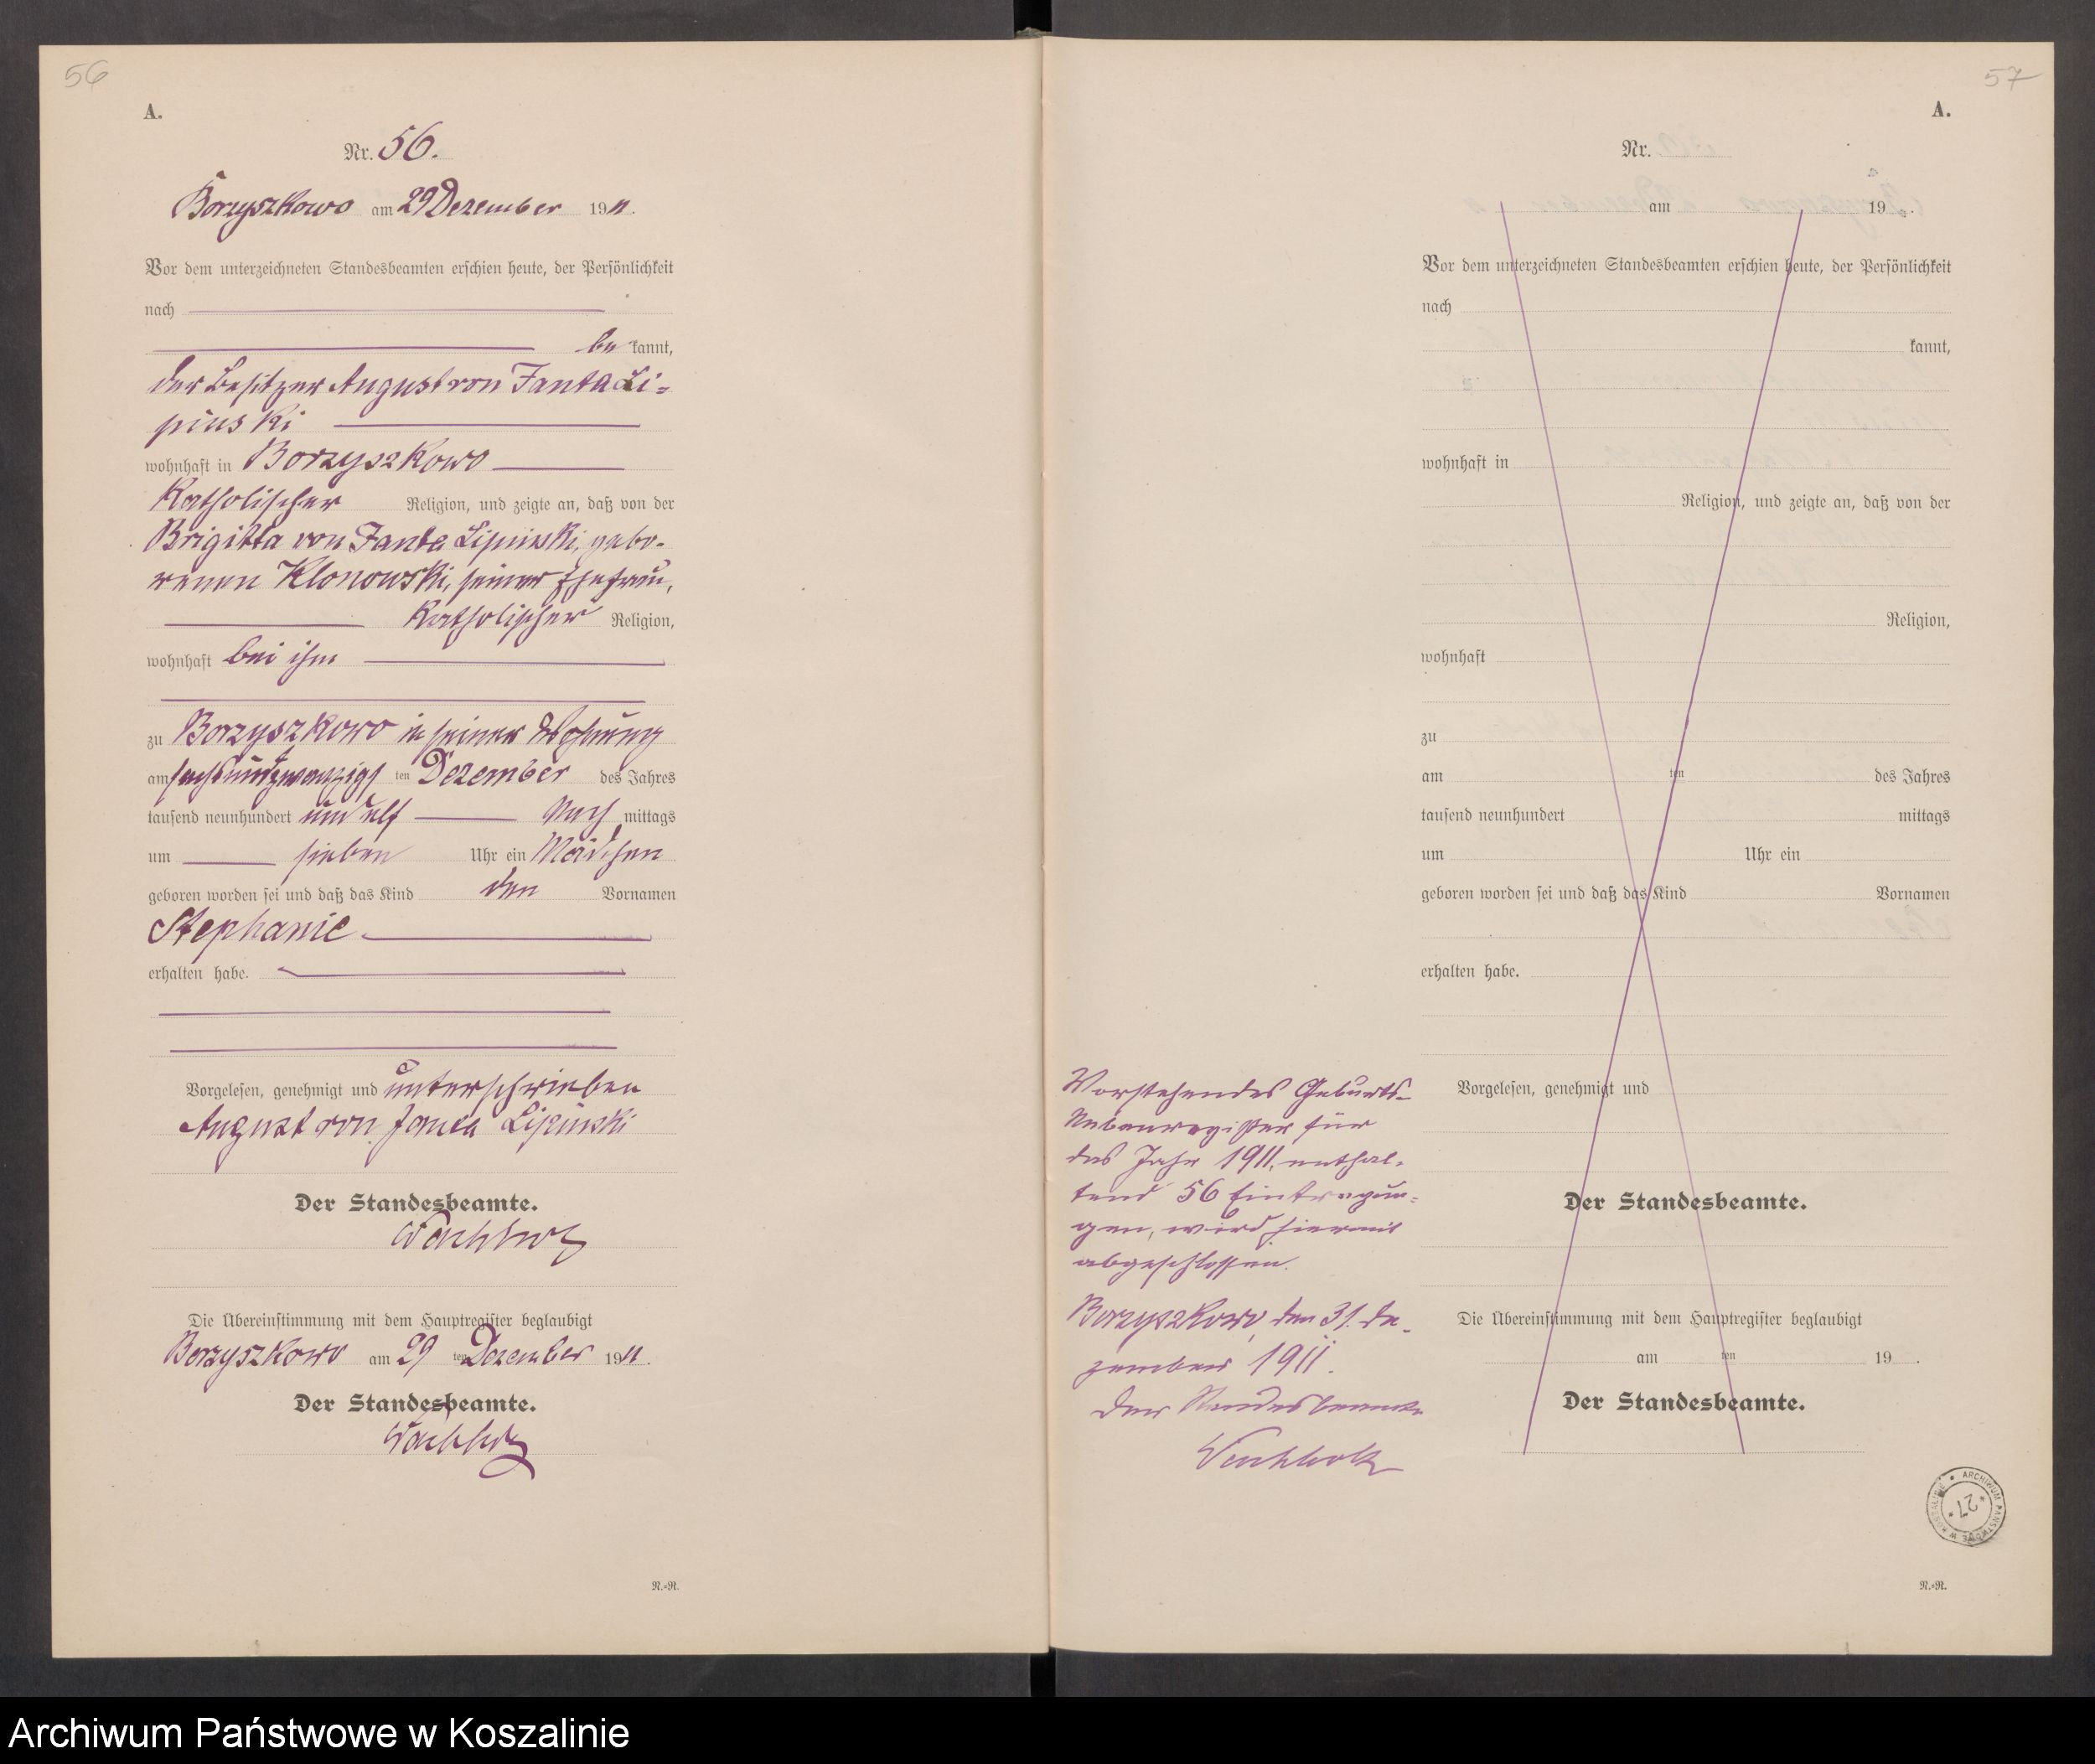 56
A.
Nr. 56.
Borzyszkowo am 29 Dezember 1911.
Vor dem unterzeichneten Standesbeamten erschien heute, der Persönlichkeit
nach
be kannt,
der Besitzer August von Janta Li=
pinski
wohnhaft in Borzyszkowo
Katholischer Religion, und zeigte an, daß von der
Brigitta von Janta Lipinski, gebo-
renen Klonowski, seiner Ehefrau,
Katholischer Religion,
wohnhaft bei ihm
zu Borzyszkowo in seiner Wohnung
am sechsundzwanzigs ten Dezember des Jahres
tausend neunhundert und elf Nach mittags
um sieben Uhr ein Mädchen
geboren worden sei und daß das Kind den Vornamen
Stephanie
erhalten habe.
Vorgelesen, genehmigt und unterschrieben
August von Janta Lipinski
Der Standesbeamte.
Wachholz
Die Übereinstimmung mit dem Hauptregister beglaubigt
Borzyszkowo am 29 ten Dezember 1911.
Der Standesbeamte.
Wachholz
N.=R.
57
A.
Nr.
am 19 .
Vor dem unterzeichneten Standesbeamten erschien heute, der Persönlichkeit
nach
kannt,
wohnhaft in
Religion, und zeigte an, daß von der
Religion,
wohnhaft
zu
am ten des Jahres
tausend neunhundert mittags
um Uhr ein
geboren worden sei und daß das Kind Vornamen
erhalten habe.
Vorgelesen, genehmigt und
Der Standesbeamte.
Die Übereinstimmung mit dem Hauptregister beglaubigt
am ten 19 .
Der Standesbeamte.
Vorstehendes Geburts-
Nebenregister für
das Jahr 1911, enthal-
tend 56 Eintragun=
gen, wird hiermit
abgeschlossen.
Borzyszkowo, den 31. De-
zember 1911.
Der Standesbeamte
Wachholz
ARCHIWUM PAŃSTWOWE W KOSZALINIE
*27*
N.=R.
Archiwum Państwowe w Koszalinie